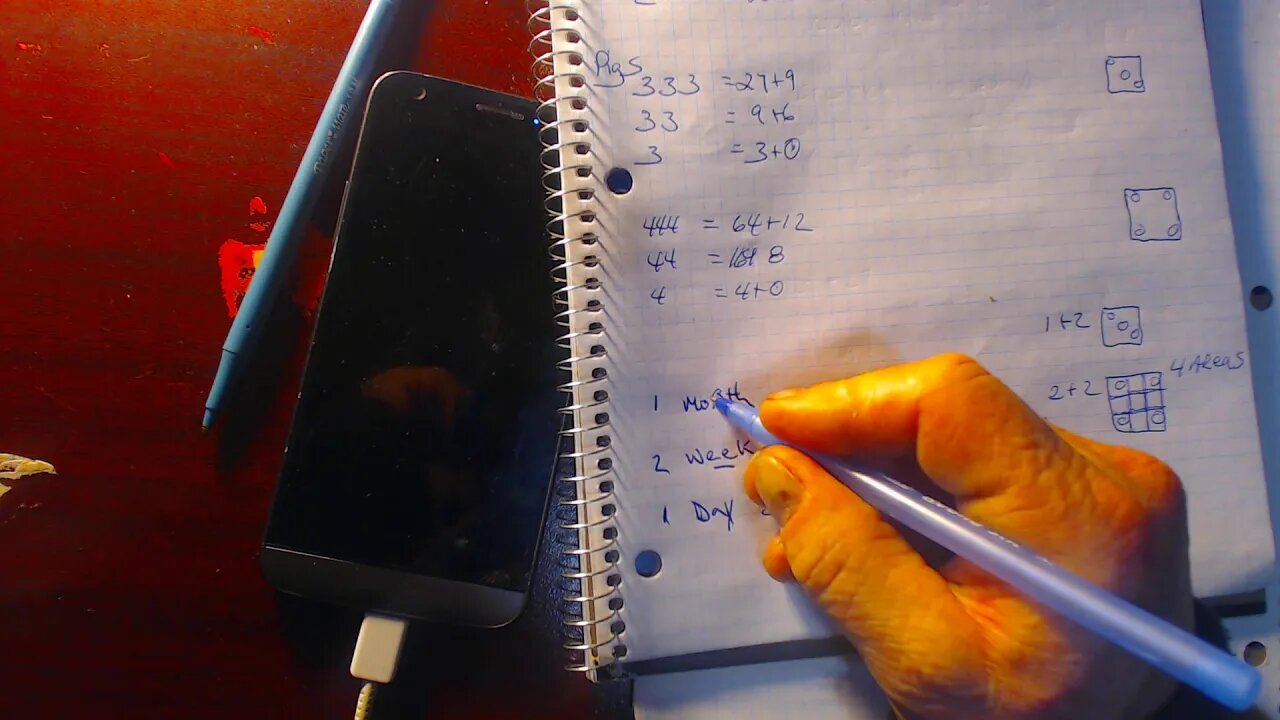 Pigs
333 = 27+9
33 = 9+6
3 = 3+0
444 = 64+12
44 = 16+8
4 = 4+0
1+2
4 Areas
2+2
1 Month
2 week
1 Day